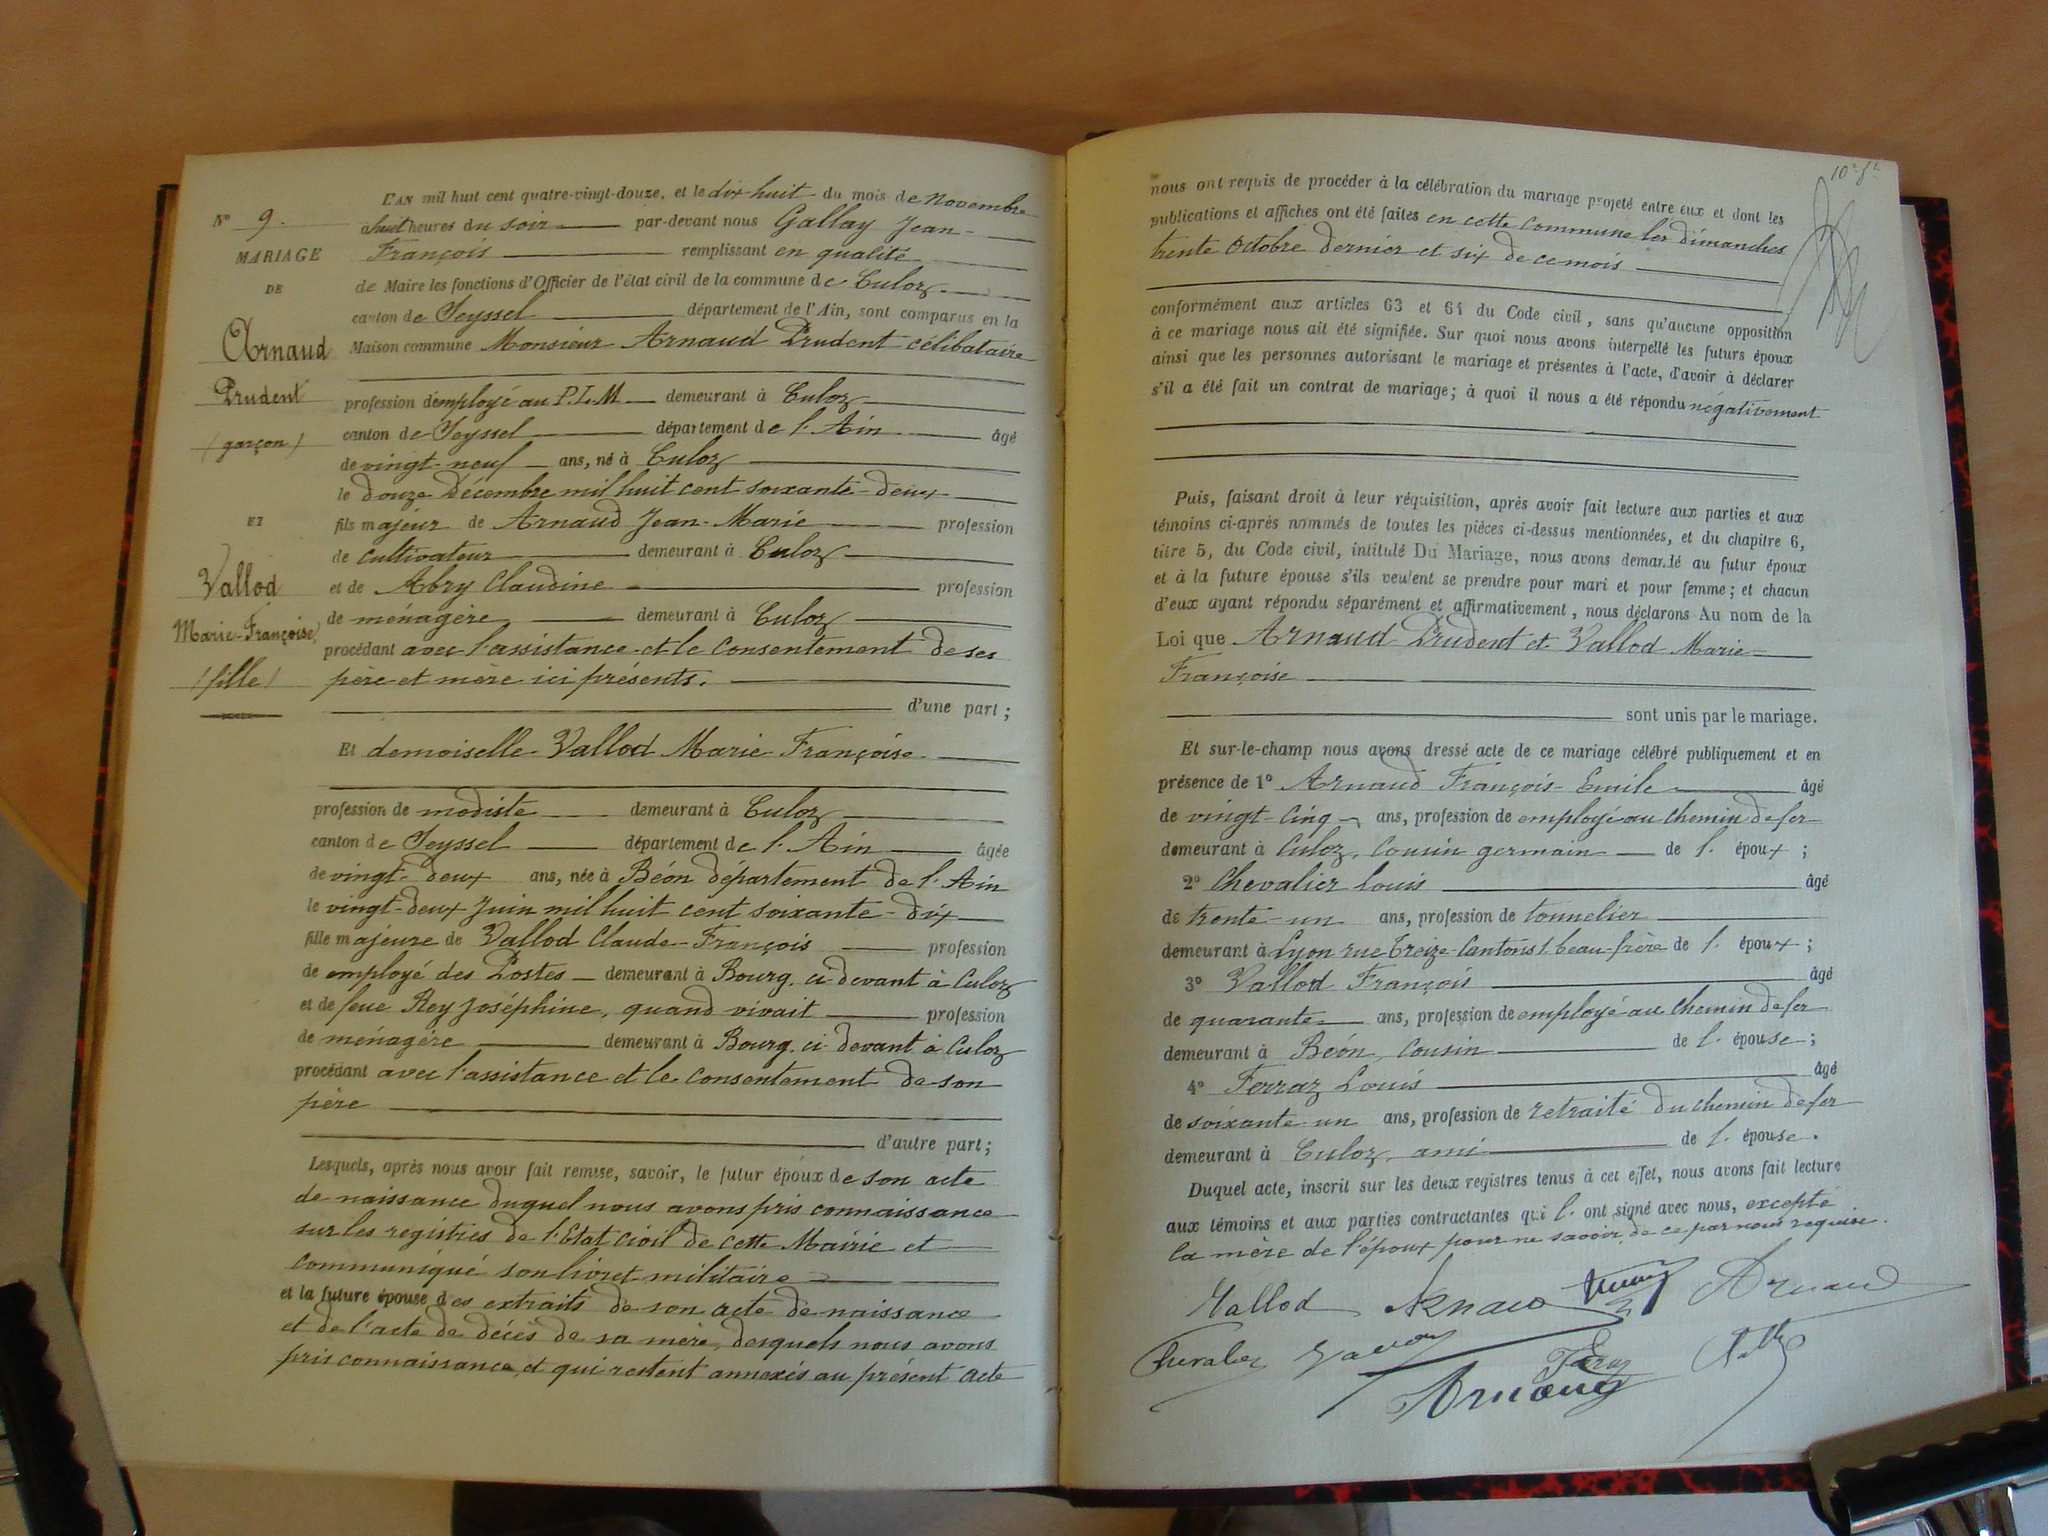 L'AN mil huit cent quatre-vingt-douze, et le dix-huit du mois de Novembre
N° 9. à huit heures du soir par-devant nous Gallay Jean-
MARIAGE François remplissant en qualité
DE de Maire les fonctions d'Officier de l'état civil de la commune de Culoz
canton de Seyssel département de l'Ain, sont comparus en la
Arnaud Maison commune Monsieur Arnaud Prudent célibataire
Prudent profession d'employé au P.L.M demeurant à Culoz
(garçon) canton de Seyssel département de l'Ain âgé
de vingt-neuf ans, né à Culoz
le douze Décembre mil huit cent soixante-deux
ET fils majeur de Arnaud Jean-Marie profession
de cultivateur demeurant à Culoz
Vallod et de Abry Claudine profession
Marie-Françoise de ménagère demeurant à Culoz
procédant avec l'assistance et le consentement de ses
(fille) père et mère ici présents.
d'une part;
Et demoiselle Vallod Marie Françoise
profession de modiste demeurant à Culoz
canton de Seyssel département de l'Ain âgée
de vingt-deux ans, née à Béon département de l'Ain
le vingt-deux Juin mil huit cent soixante-dix
fille majeure de Vallod Claude-François profession
de employé des Postes demeurant à Bourg, ci devant à Culoz
et de feue Rey Joséphine, quand vivait profession
de ménagère demeurant à Bourg, ci devant à Culoz
procédant avec l'assistance et le consentement de son
père
d'autre part;
Lesquels, après nous avoir fait remise, savoir, le futur époux de son acte
de naissance duquel nous avons pris connaissance
sur les registres de l'Etat civil de cette Mairie et
communiqué son livret militaire
et la future épouse des extraits de son acte de naissance
et de l'acte de décès de sa mère, desquels nous avons
pris connaissance et qui restent annexés au présent acte
nous ont requis de procéder à la célébration du mariage projeté entre eux et dont les
publications et affiches ont été faites en cette commune les dimanches
trente Octobre dernier et six de ce mois
conformément aux articles 63 et 64 du Code civil, sans qu'aucune opposition
à ce mariage nous ait été signifiée. Sur quoi nous avons interpellé les futurs époux
ainsi que les personnes autorisant le mariage et présentes à l'acte, d'avoir à déclarer
s'il a été fait un contrat de mariage; à quoi il nous a été répondu négativement
Puis, faisant droit à leur réquisition, après avoir fait lecture aux parties et aux
témoins ci-après nommés de toutes les pièces ci-dessus mentionnées, et du chapitre 6,
titre 5, du Code civil, intitulé Du Mariage, nous avons demandé au futur époux
et à la future épouse s'ils veulent se prendre pour mari et pour femme; et chacun
d'eux ayant répondu séparément et affirmativement, nous déclarons Au nom de la
Loi que Arnaud Prudent et Vallod Marie
Françoise
sont unis par le mariage.
Et sur-le-champ nous avons dressé acte de ce mariage célébré publiquement et en
présence de 1° Arnaud François-Emile âgé
de vingt-cinq ans, profession de employé au chemin de fer
demeurant à Culoz, cousin germain de l'époux;
2° Chevalier Louis âgé
de trente-un ans, profession de tonnelier
demeurant à Lyon rue Treize-Cantons 1. beau-frère de l'époux;
3° Vallod François âgé
de quarante ans, profession de employé au chemin de fer
demeurant à Béon, cousin de l'épouse;
4° Ferraz Louis âgé
de soixante-un ans, profession de retraité du chemin de fer
demeurant à Culoz, ami de l'épouse.
Duquel acte, inscrit sur les deux registres tenus à cet effet, nous avons fait lecture
aux témoins et aux parties contractantes qui l'ont signé avec nous, excepté
la mère de l'époux pour ne savoir, de ce par nous requise.
Vallod Arnaud Arnaud
Chevalier
Arnaud